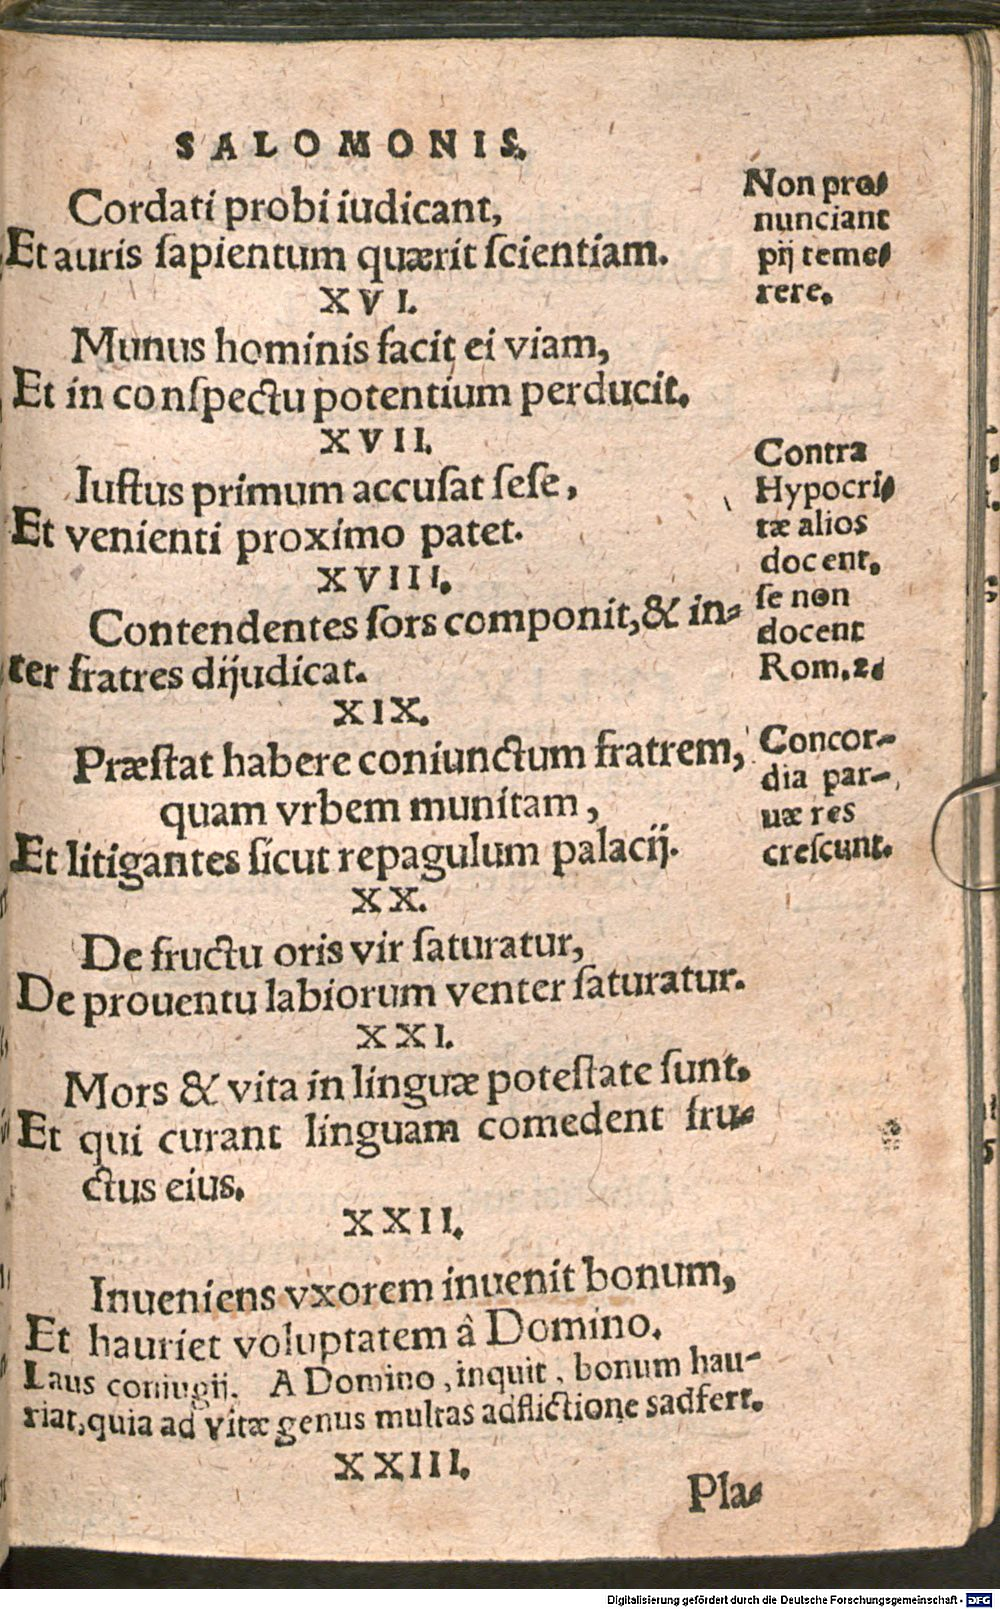 SALOMONIS.
Cordati probi iudicant,
Et auris ſapientum quærit ſcientiam.
Non pro⸗
nunciant
pij teme⸗
rere.
XVI.
Munus hominis facit ei viam,
Et in conſpectu potentium perducit.
XVII.
Iuſtus primum accuſat ſeſe,
Et venienti proximo patet.
Contra
Hypocri⸗
tæ alios
docent.
ſe non
docent
Rom.2.
XVIII.
Contendentes ſors componit,& in⸗
ter fratres dijudicat.
XIX.
Præſtat habere coniunctum fratrem,
quam vrbem munitam,
Et litigantes ſicut repagulum palacij.
Concor-
dia par-
uæ res
creſcunt.
XX.
De fructu oris vir ſaturatur,
De prouentu labiorum venter ſaturatur.
XXI.
Mors & vita in linguæ poteſtate ſunt.
Et qui curant linguam comedent fru⸗
ctus eius.
XXII.
Inueniens vxorem inuenit bonum,
Et hauriet voluptatem â Domino.
Laus coniugij. A Domino, inquit, bonum hau-
riat, quia ad vitæ genus multas adflictione sadfert.
XXIII.
Pla⸗
Digitalisierung gefördert durch die Deutsche Forschungsgemeinschaft - DFG